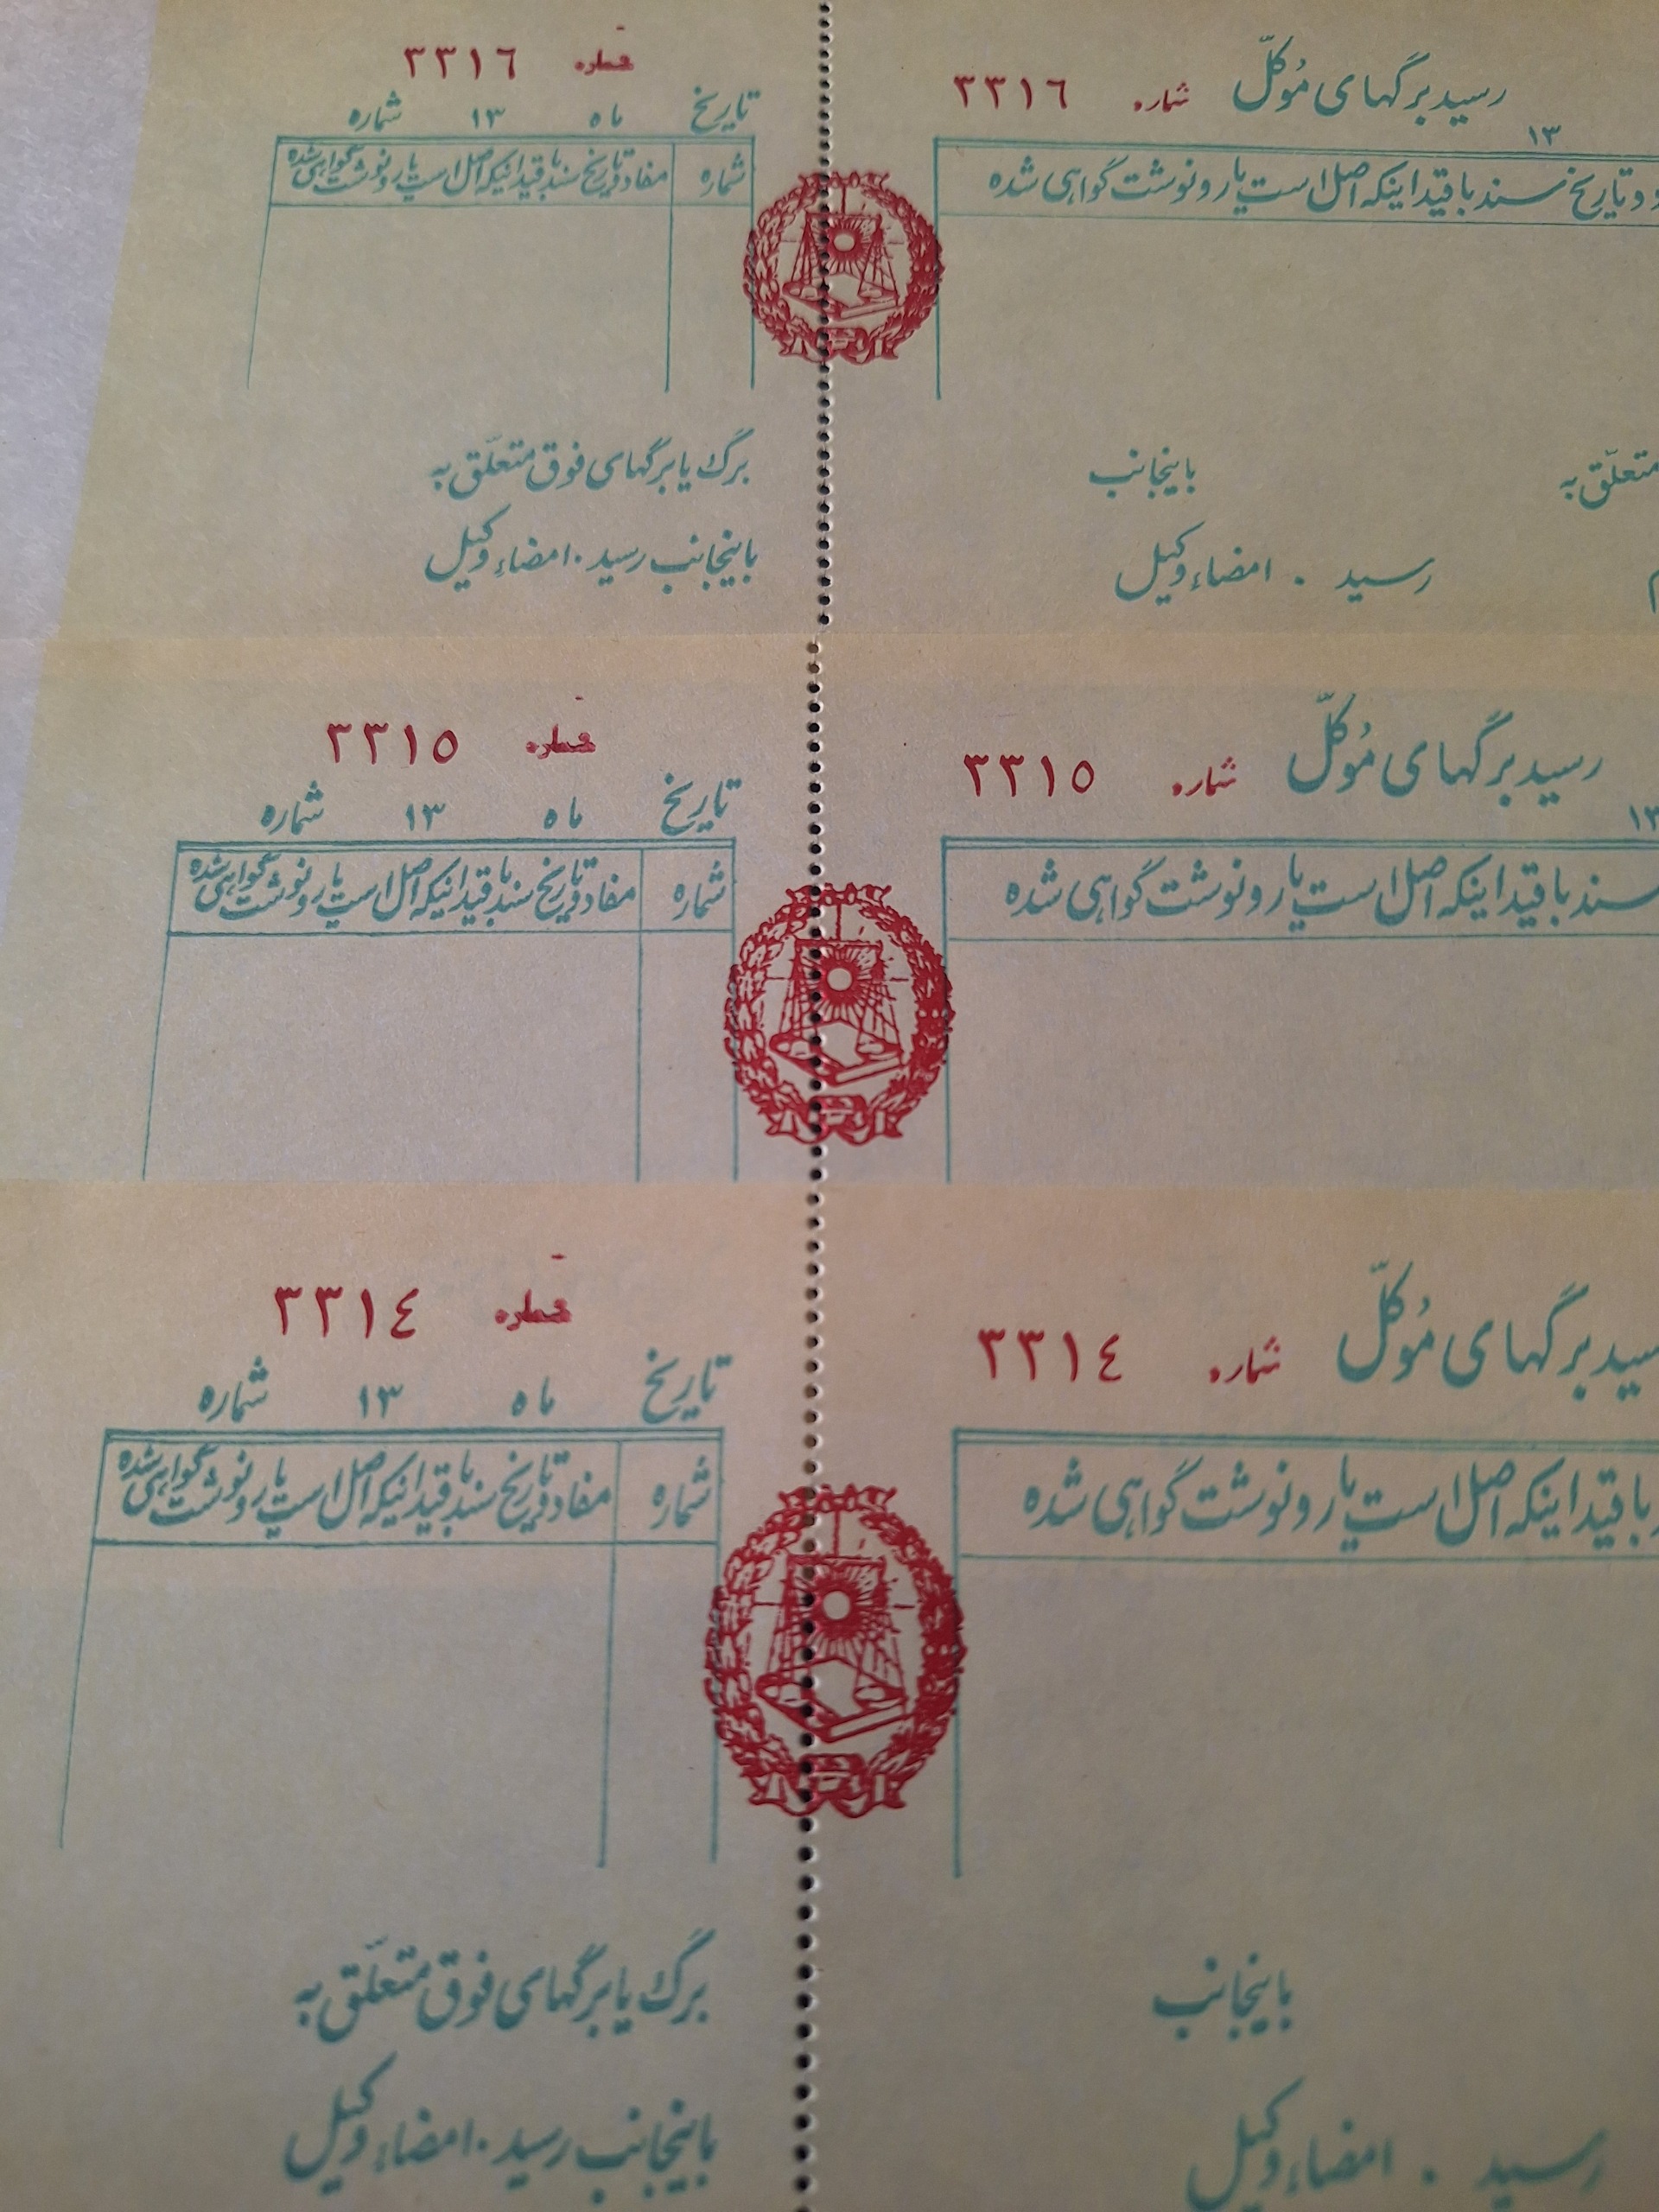 رسید برگهای مُوکلّ شماره ٣٣١٦
١٣
و تاریخ سند با قید اینکه اصل است یا رونوشت گواهی شده
متعلّق به باینجانب
رسید . امضاء وکیل
شماره ٣٣١٦
تاریخ ماه ١٣ شماره
شماره مفاد و تاریخ سند با قید اینکه اصل است یا رونوشت گواهی شده
برگ یا برگهای فوق متعلّق به
باینجانب رسید . امضاء وکیل
رسید برگهای مُوکلّ شماره ٣٣١٥
١٣
سند با قید اینکه اصل است یا رونوشت گواهی شده
شماره ٣٣١٥
تاریخ ماه ١٣ شماره
شماره مفاد و تاریخ سند با قید اینکه اصل است یا رونوشت گواهی شده
رسید برگهای مُوکلّ شماره ٣٣١٤
با قید اینکه اصل است یا رونوشت گواهی شده
باینجانب
رسید . امضاء وکیل
شماره ٣٣١٤
تاریخ ماه ١٣ شماره
شماره مفاد و تاریخ سند با قید اینکه اصل است یا رونوشت گواهی شده
برگ یا برگهای فوق متعلّق به
باینجانب رسید . امضاء وکیل